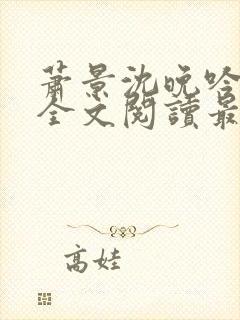 蕭景沈晚吟
全文閱讀最
高娃